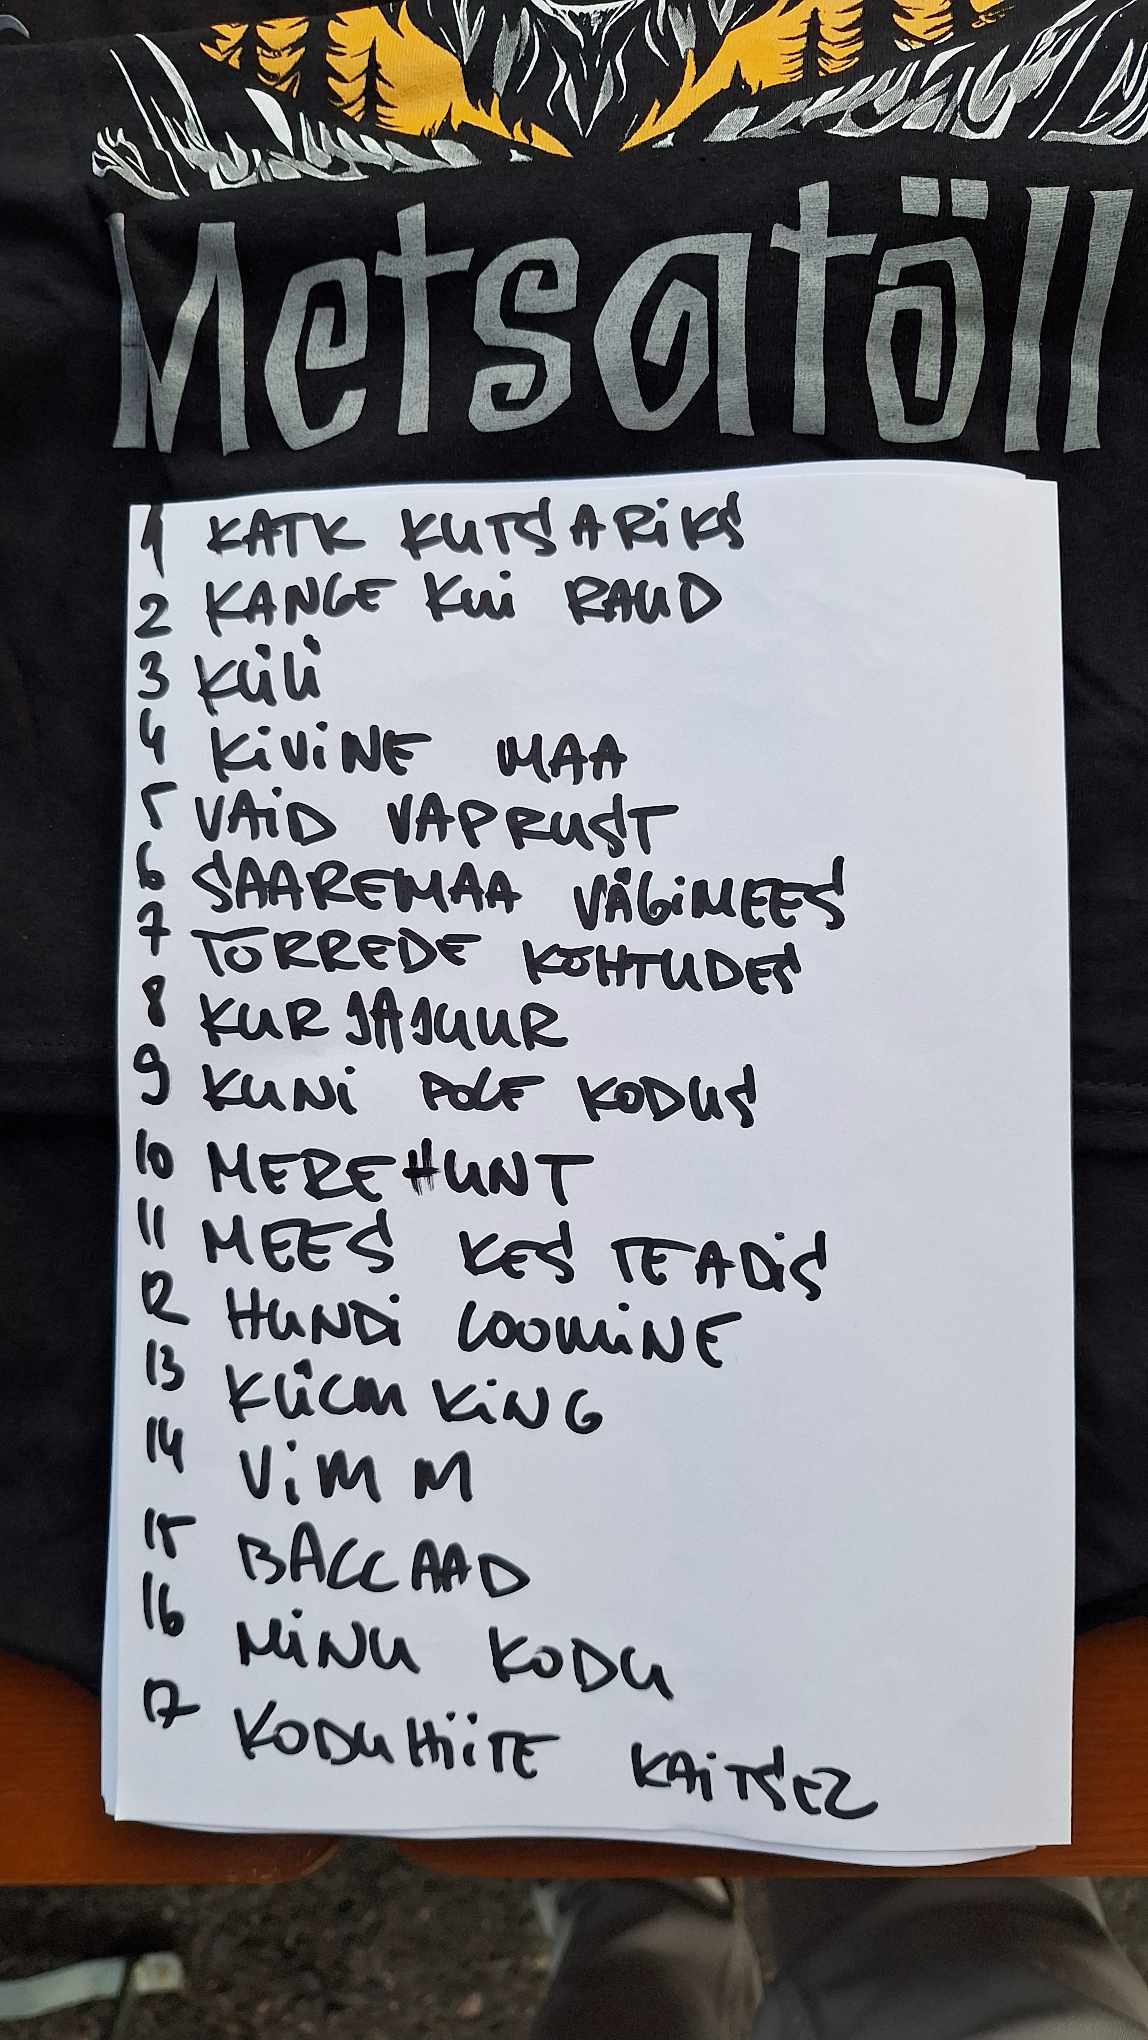 Metsatöll
1 KATK KUTSARiKS
2 KANGE KUi RAUD
3 KÜÜ
4 KiViNE MAA
5 VAiD VAPRUST
6 SAAREMAA VÄGiMEES
7 TÕRREDE KÕHTUDES
8 KURJAJUUR
9 KUNi POLE KODUS
10 MEREHUNT
11 MEES KES TEADiS
12 HUNDi LOOMiNE
13 KÜLMKiNG
14 ViMM
15 BALLAAD
16 MiNU KODU
17 KODUHiiTE KAiTSEL